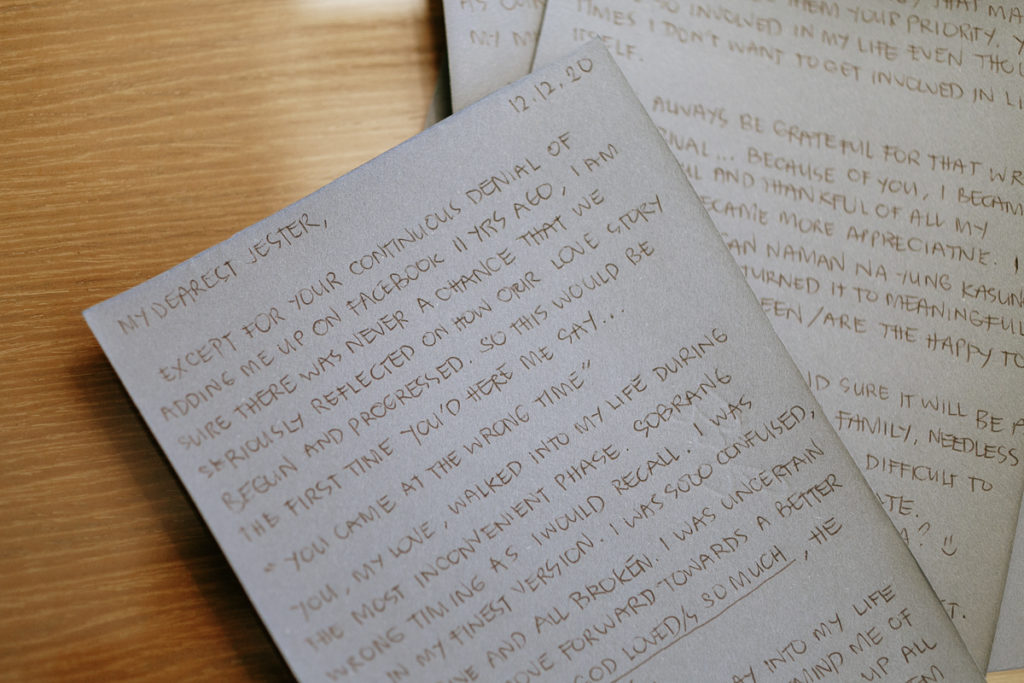 12.12.20
MY DEAREST JESTER,
EXCEPT FOR YOUR CONTINUOUS DENIAL OF
ADDING ME UP ON FACEBOOK 11 YRS AGO, I AM
SURE THERE WAS NEVER A CHANCE THAT WE
SERIOUSLY REFLECTED ON HOW OUR LOVE STORY
BEGUN AND PROGRESSED. SO THIS WOULD BE
THE FIRST TIME YOU'D HERE ME SAY...
"YOU CAME AT THE WRONG TIME"
YOU, MY LOVE, WALKED INTO MY LIFE DURING
THE MOST INCONVENIENT PHASE. SOBRANG
WRONG TIMING AS I WOULD RECALL. I WAS
IN MY FINEST VERSION. I WAS SOLO CONFUSED,
AND ALL BROKEN. I WAS UNCERTAIN
FORWARD TOWARDS A BETTER
GOD LOVED/S SO MUCH, HE
INTO MY LIFE
MIND ME OF
UP ALL
AS OUR
MY
THAT
THEM YOUR PRIORITY.
SO INVOLVED IN MY LIFE EVEN
TIMES I DON'T WANT TO GET INVOLVED IN
ITSELF.
ALWAYS BE GRATEFUL FOR THAT
BECAUSE OF YOU, I
AND THANKFUL OF ALL MY
BECAME MORE APPRECIATIVE.
NAMAN NA YUNG
TURNED IT TO MEANINGFUL
/ARE THE HAPPY
SURE IT WILL BE
FAMILY, NEEDLESS
DIFFICULT TO